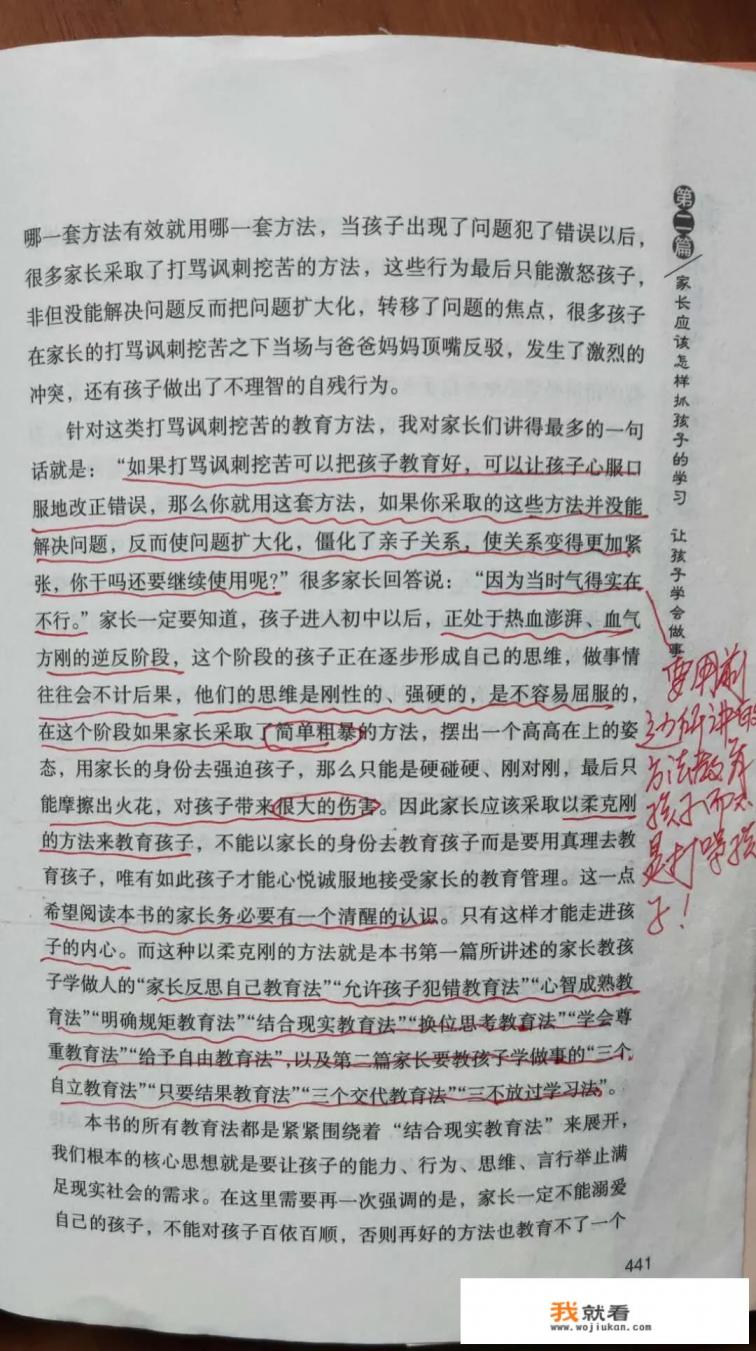 哪一套方法有效就用哪一套方法，当孩子出现了问题犯了错误以后，
很多家长采取了打骂讽刺挖苦的方法，这些行为最后只能激怒孩子，
非但没能解决问题反而把问题扩大化，转移了问题的焦点，很多孩子
在家长的打骂讽刺挖苦之下当场与爸爸妈妈顶嘴反驳，发生了激烈的
冲突，还有孩子做出了不理智的自残行为。
针对这类打骂讽刺挖苦的教育方法，我对家长们讲得最多的一句
话就是：“如果打骂讽刺挖苦可以把孩子教育好，可以让孩子心服口
服地改正错误，那么你就用这套方法，如果你采取的这些方法并没能
解决问题，反而使问题扩大化，僵化了亲子关系，使关系变得更加紧
张，你干吗还要继续使用呢？”很多家长回答说：“因为当时气得实在
不行。”家长一定要知道，孩子进入初中以后，正处于热血澎湃、血气
方刚的逆反阶段，这个阶段的孩子正在逐步形成自己的思维，做事情
往往会不计后果，他们的思维是刚性的、强硬的，是不容易屈服的，
在这个阶段如果家长采取了简单粗暴的方法，摆出一个高高在上的姿
态，用家长的身份去强迫孩子，那么只能是硬碰硬、刚对刚，最后只
能摩擦出火花，对孩子带来很大的伤害。因此家长应该采取以柔克刚
的方法来教育孩子，不能以家长的身份去教育孩子而是要用真理去教
育孩子，唯有如此孩子才能心悦诚服地接受家长的教育管理。这一点
希望阅读本书的家长务必要有一个清醒的认识。只有这样才能走进孩
子的内心。而这种以柔克刚的方法就是本书第一篇所讲述的家长教孩
子学做人的“家长反思自己教育法”“允许孩子犯错教育法”“心智成熟教
育法”“明确规矩教育法”“结合现实教育法”“换位思考教育法”“学会尊
重教育法”“给予自由教育法”，以及第二篇家长要教孩子学做事的“三个
自立教育法”“只要结果教育法”“三个交代教育法”“三不放过学习法”。
本书的所有教育法都是紧紧围绕着“结合现实教育法”来展开，
我们根本的核心思想就是要让孩子的能力、行为、思维、言行举止满
足现实社会的需求。在这里需要再一次强调的是，家长一定不能溺爱
自己的孩子，不能对孩子百依百顺，否则再好的方法也教育不了一个
441
第二篇
家长应该怎样抓孩子的学习 让孩子学会做事
要用前
边所讲的
方法教育
孩子而不
是打骂孩
子！
我就看
www.wojiukan.com